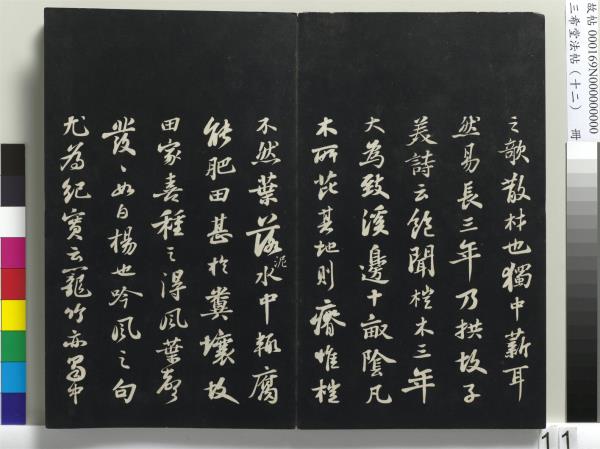 之欹散材也獨中薪耳
然易長三年乃拱故子
美詩云飽聞榿木三年
大為致溪邊十畝陰凡
木所芘其地則瘠惟榿
不然葉落泥水中輒腐
能肥田甚於糞壤故
田家喜種之得風葉聲
發發如白楊也吟風之句
尤為紀實云籠竹亦蜀中
故帖 000169N000000000
三希堂法帖（十二） 冊
11